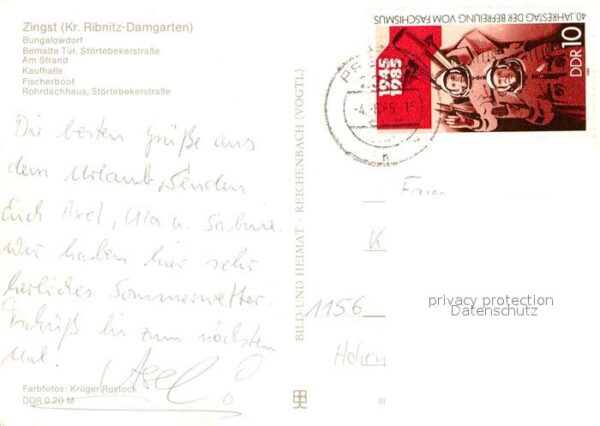 Zingst (Kr. Ribnitz-Damgarten)
Bungalowdorf
Bemalte Tür, Störtebekerstraße
Am Strand
Kaufhalle
Fischerboot
Rohrdachhaus, Störtebekerstraße
Die besten Grüße aus
dem Urlaub, senden
Euch Axel, Uta u. Sabine.
Wir haben hier sehr
herrliches Sommerwetter.
Tschüß bis zum nächsten
Mal. Axel
Farbfotos: Krüger, Rostock
DDR 0,20 M
BILD UND HEIMAT · REICHENBACH (VOGTL)
40. JAHRESTAG DER BEFREIUNG VOM FASCHISMUS
1945
1985
DDR 10
Fam
K
1156
Hohen
III
privacy protection
Datenschutz